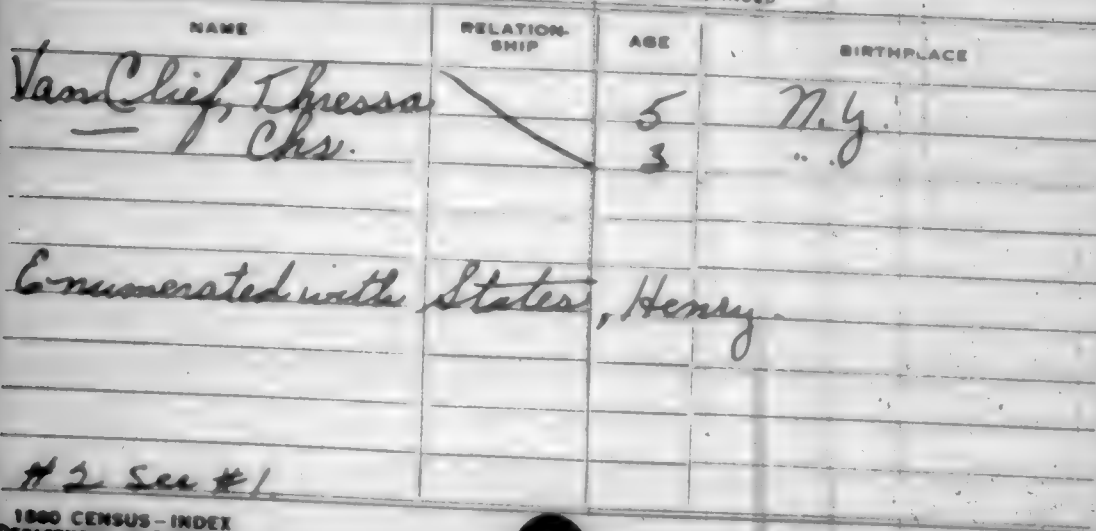 NAME RELATION-SHIP AGE BIRTHPLACE
Van Clief, Thressa 5 N.Y.
Chs. 3 " "
Enumerated with States, Henry
#2 See #1
1880 CENSUS-INDEX